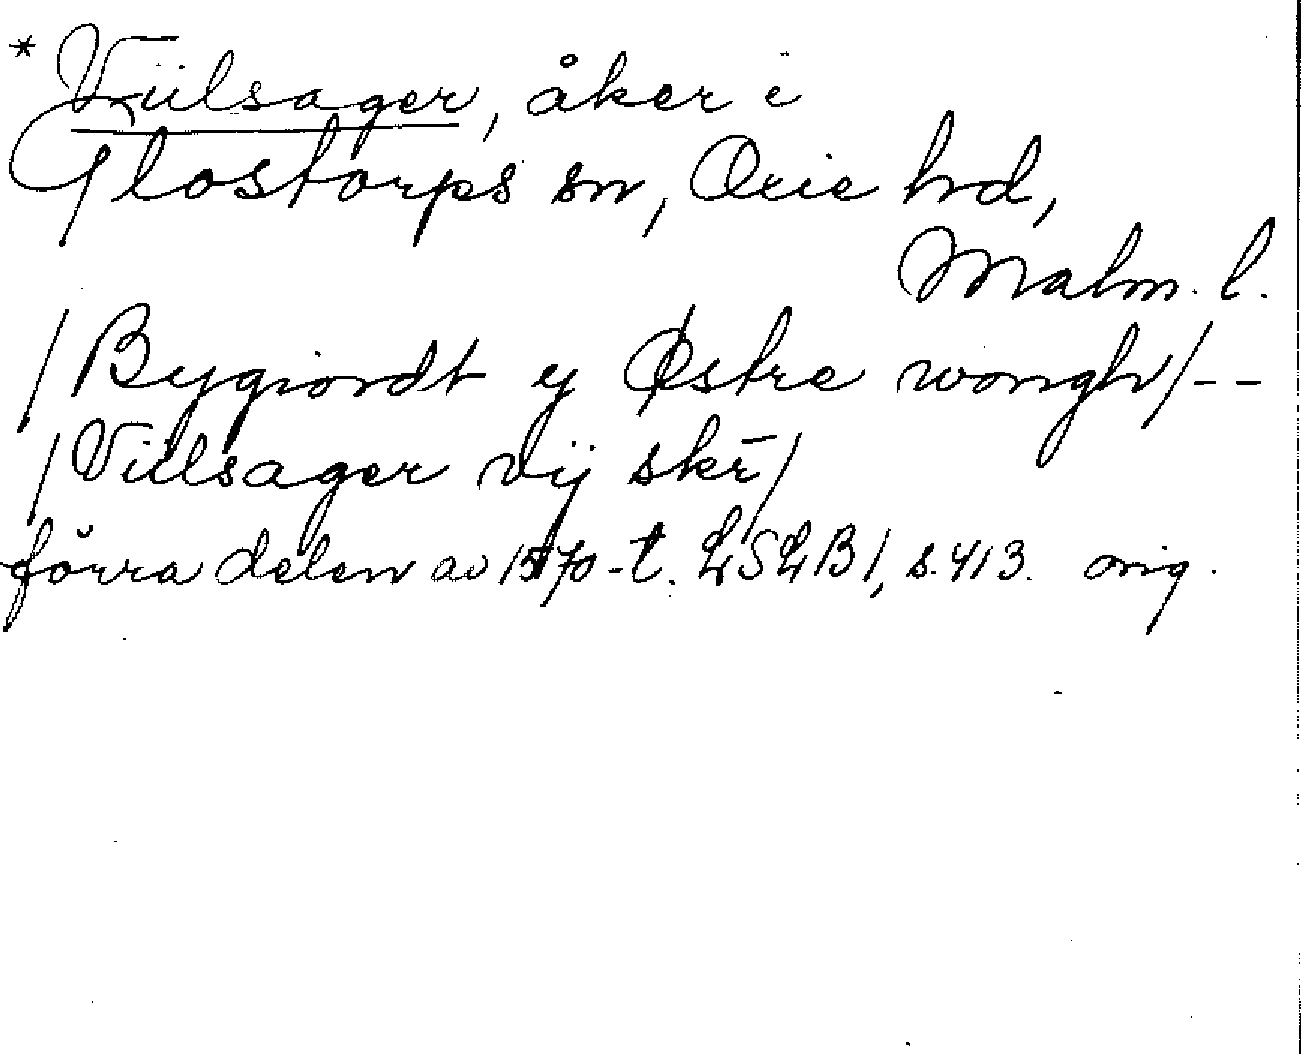 * Viilsager, åker i
Glostorps sn, Oxie hd,
Malm. l.
/Bygiordt y Østre wongh/--
/Viilsager vij skr̄/
förra delen av 1570-t. LSLB 1, s. 413. orig.